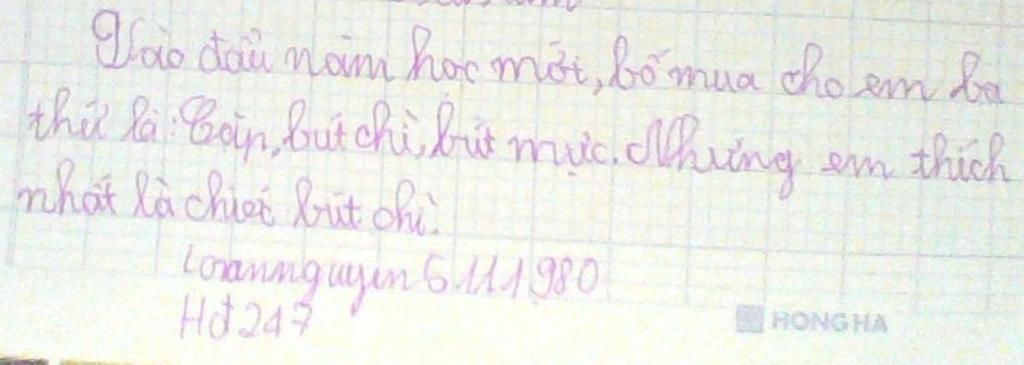 Vào đầu năm học mới, bố mua cho em ba
thứ là: Cặp, bút chì, bút mực. Nhưng em thích
nhất là chiếc bút chì.
Loannguyen 5111980
Hđ247
HONG HA